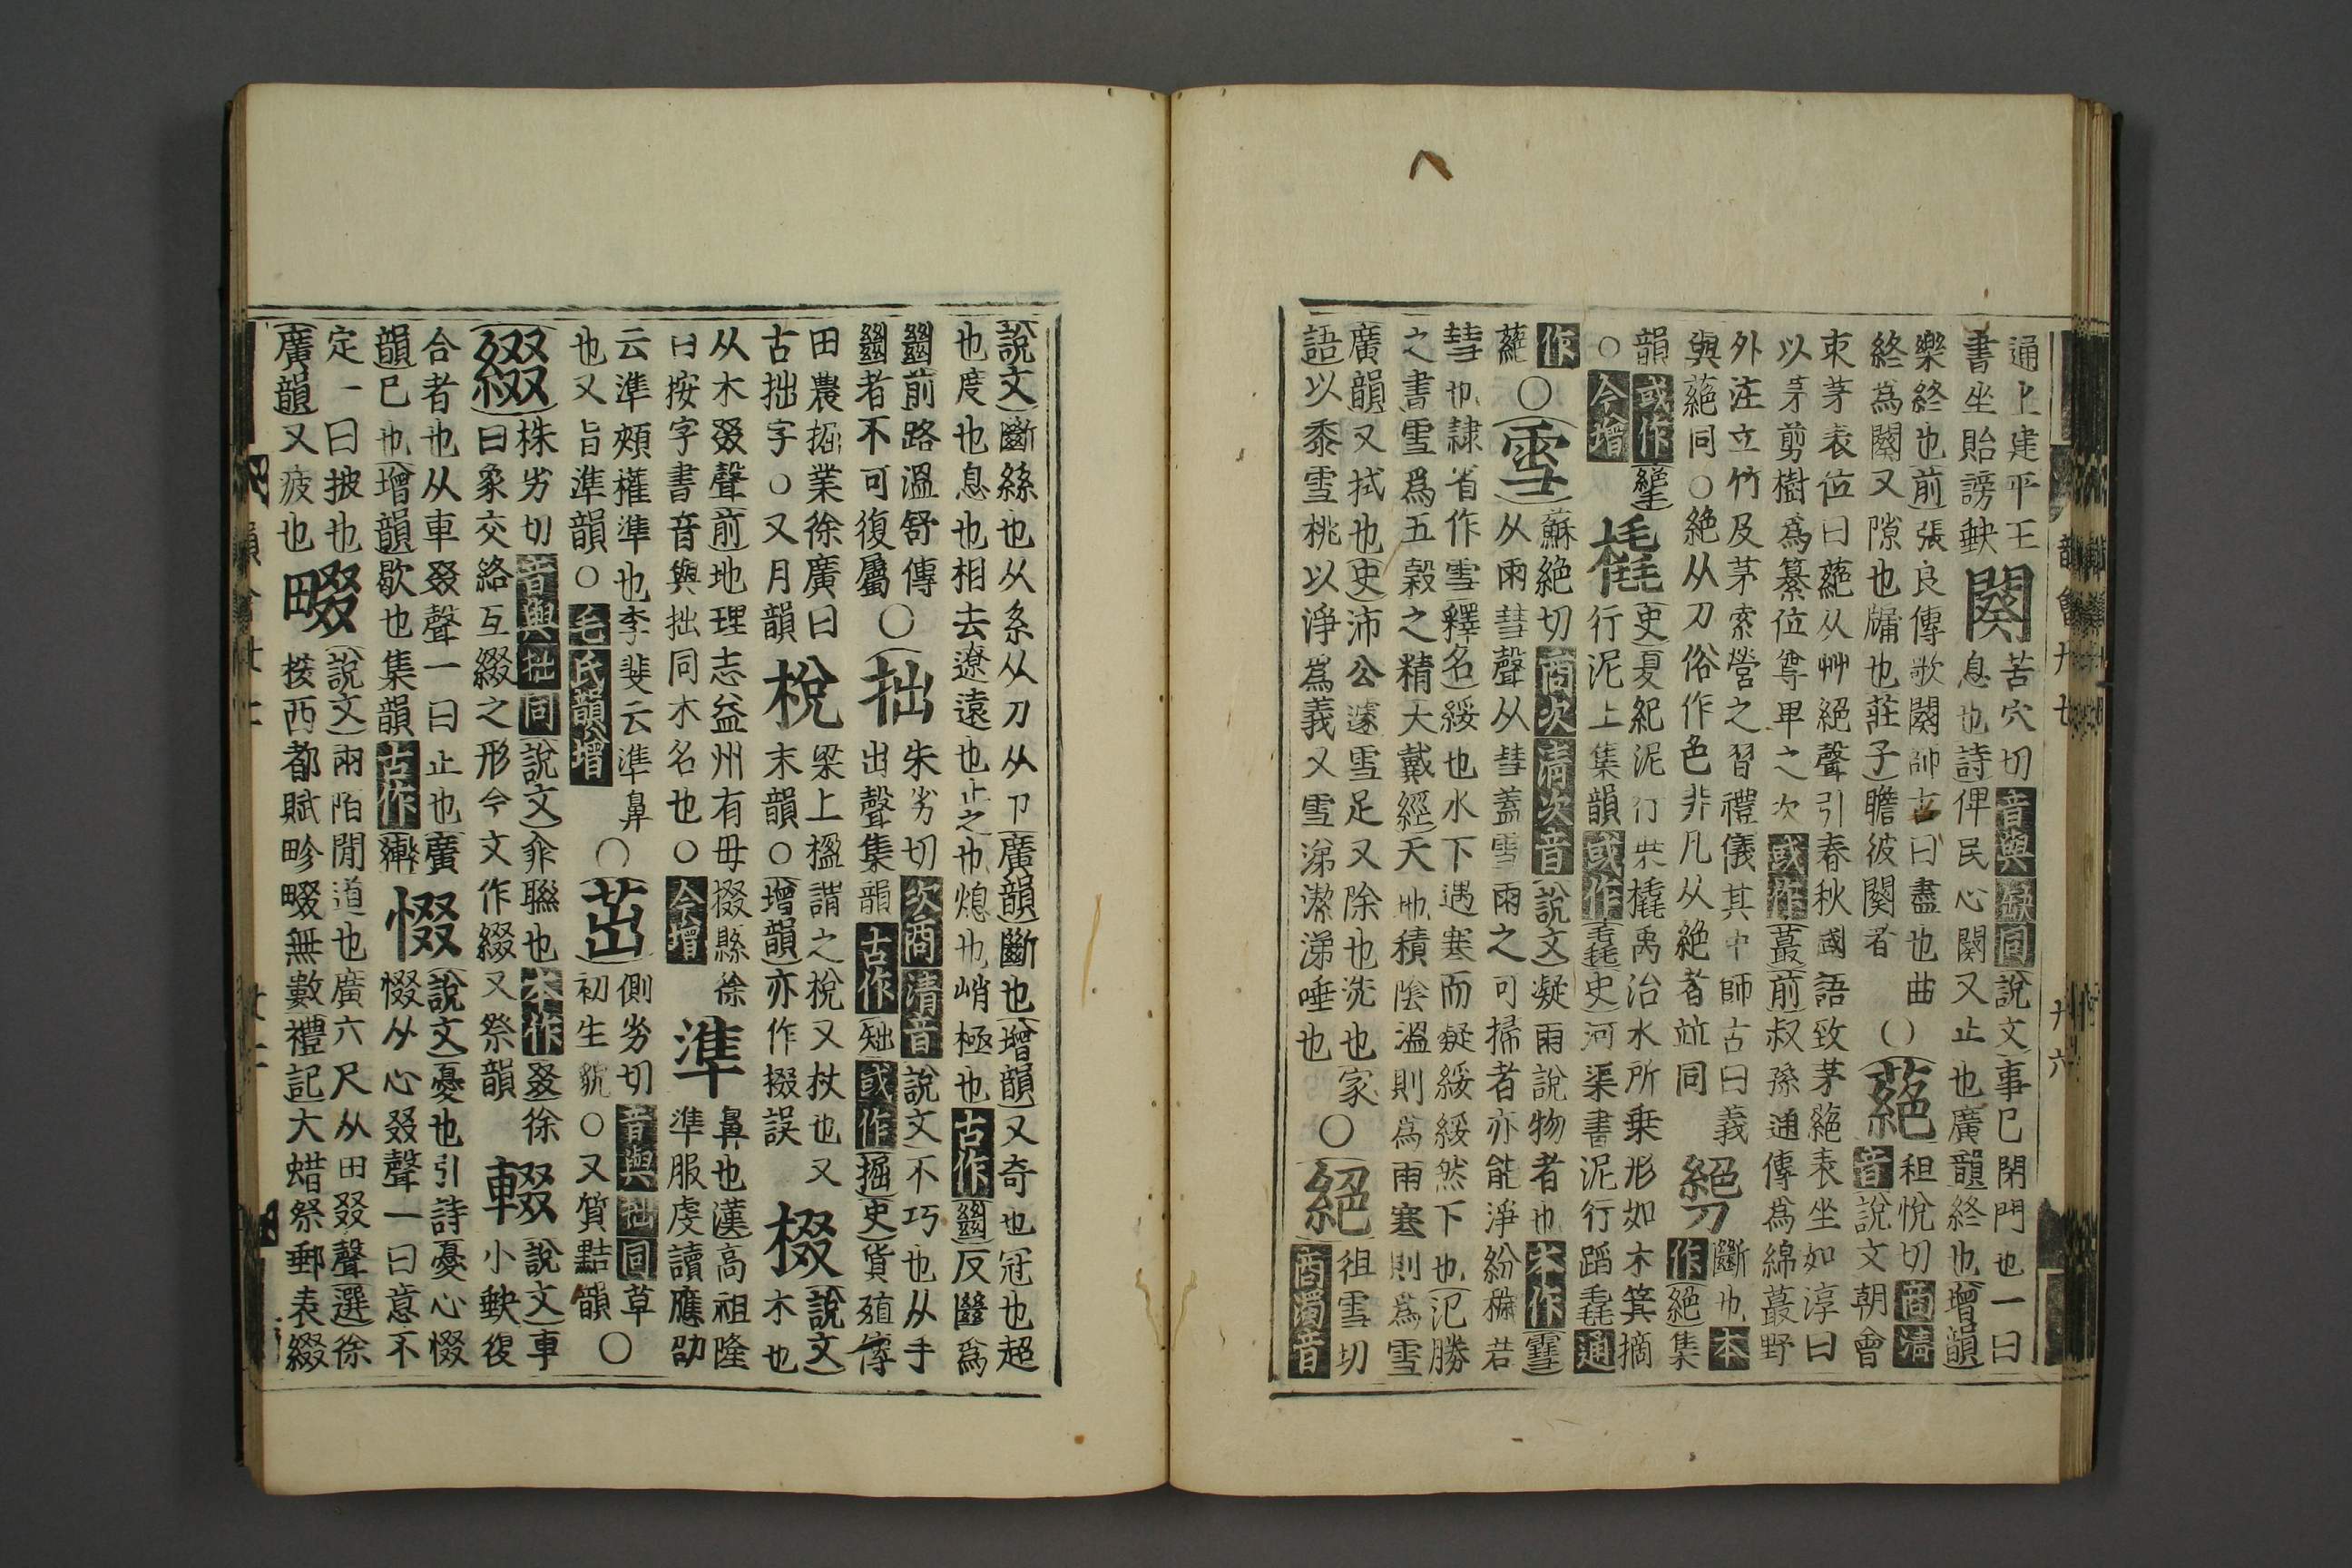 通上建平王
書坐貽謗軮
闋
苦穴切音與缺同說文事已閉門也一曰
息也詩俾民心闋又止也廣韻終也增韻
樂終也前張良傳歌闋師古曰盡也曲
終爲闋又隙也牖也莊子瞻彼闋者
○蕝
租悅切商清
音說文朝會
束茅表位曰蕝从艸絕聲引春秋國語致茅蕝表坐如淳曰
以茅剪樹爲纂位尊卑之次或作蕞前叔孫通傳爲綿蕞野
外注立竹及茅索營之習禮儀其中師古曰義
與蕝同○絕从刀俗作色非凡从絕者竝同
斷也本
作絕集
韻或作
○今增
橇
史夏紀泥行乘橇禹治水所乗形如木箕摘
行泥上集韻或作毳史河渠書泥行蹈毳通
作
蕝
○雪
蘇絕切商次清次音說文凝雨說物者也本作䨮
从雨彗聲从彗蓋雪雨之可掃者亦能淨紛穢若
彗也隷省作雪釋名綏也水下遇寒而凝綏綏然下也氾勝
之書雪爲五糓之精大戴經天地積陰溫則爲雨寒則爲雪
廣韻又拭也史沛公遽雪足又除也洗也家
語以黍雪桃以淨爲義又雪涕潔涕唾也
○絕
徂雪切
商濁音
說文斷絲也从糸从刀从卩廣韻斷也增韻又奇也冠也超
也度也息也相去遼遠也止之也熄也峭極也古作𢇍反𢇍爲
𢇍前路溫舒傳
𢇍者不可復屬
○拙
朱劣切次商清音說文不巧也从手
出聲集韻古作㑁或作掘史貨殖傳
田農掘業徐廣曰
古拙字○又月韻
梲
梁上楹謂之梲又杖也又
末韻○增韻亦作掇誤
棳
說文
木也
从木叕聲前地理志益州有毋掇縣徐
曰按字書音與拙同木名也○今增
準
鼻也漢高祖隆
準服虔讀應劭
云準頰權準也李斐云準鼻
也又旨準韻○毛氏韻增
○茁
側劣切音與拙同草
初生貌○又質黠韻○
綴
株劣切音與拙同說文㑹聯也本作叕徐
曰象交絡互綴之形今文作綴又祭韻
輟
說文車
小軮復
合者也从車叕聲一曰止也廣
韻已也增韻歇也集韻古作
惙
說文憂也引詩憂心惙
惙从心叕聲一曰意不
定一曰披也
廣韻又疲也
畷
說文兩陌閒道也廣六尺从田叕聲選徐
按西都賦畛畷無數禮記大蜡祭郵表綴